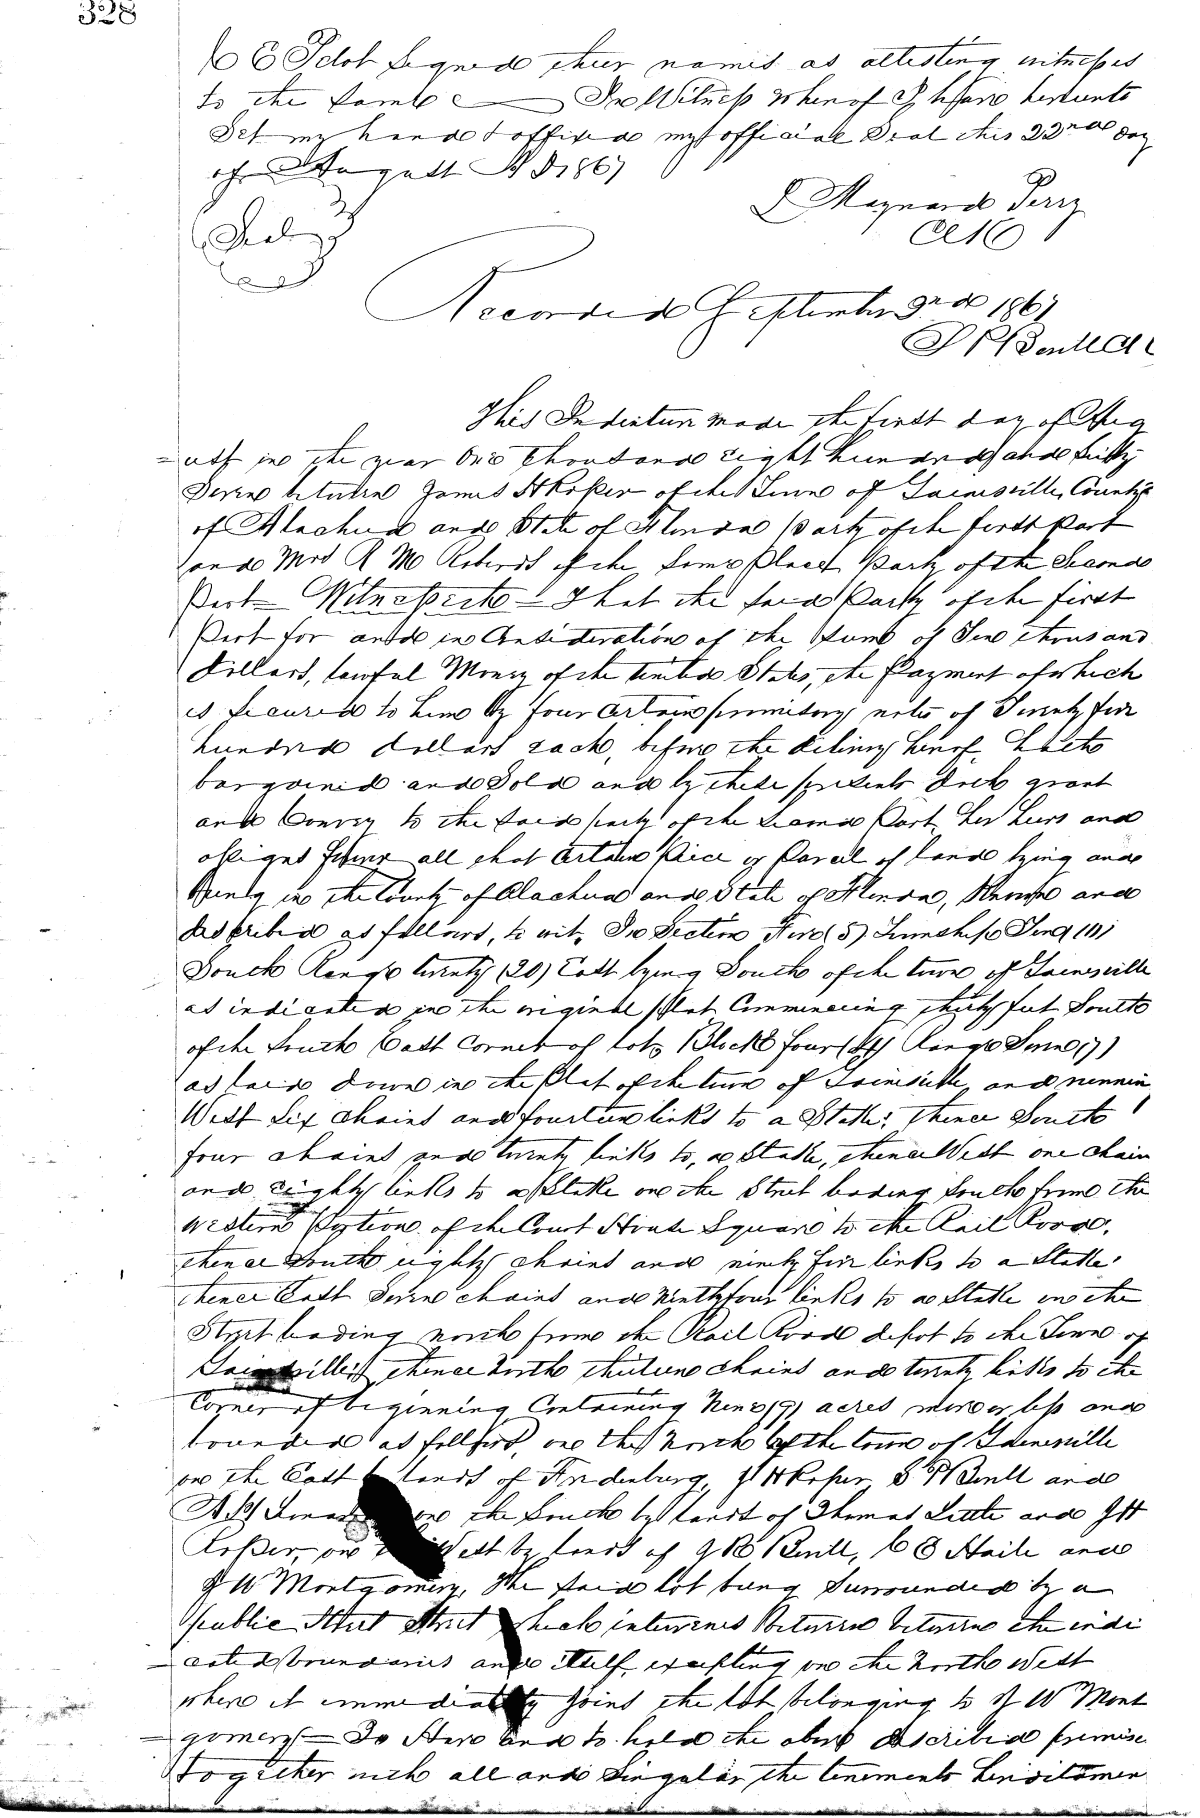 328
C E Pelot signed their names as attesting witnesses
to the same In Witness whereof I have hereunto
Set my hand & affixed my official Seal this 22nd day
of August A D 1867
L Maynard Perry
Seal
Recorded September 3rd 1867
This Indenture made the first day of Aug
=ust in the year One thousand eight hundred and Sixty
Seven between James H Roper of the Town of Gainesville, County
of Alachua and State of Florida party of the first part
and Mrs R M Roberts of the Same place Party of the Second
Part = Witnesseth = That the Said Party of the first
Part for and in Consideration of the Sum of Ten thousand
dollars, lawful Money of the United States, the Payment of which
is Secured to him by four certain promissory notes of Twenty five
hundred dollars each, before the delivery hereof, hath
bargained and Sold and by these presents doth grant
and Convey to the Said party of the Second Part, her heirs and
assigns forever all that certain Piece or Parcel of land lying and
Being in the County of Alachua and State of Florida, Known and
described as follows, to wit, In Section Five (5) Township Ten (10)
South Range twenty (20) East lying South of the town of Gainesville
as indicated in the original plat Commencing thirty feet South
of the South East Corner of lot Block four (4) Range Seven (7)
as laid down in the Plat of the town of Gainesville, and runnin
West Six Chains and fourteen links to a Stake; thence South
four chains and twenty links to, a Stake, thence West one chain
and eighty links to a Stake on the Street leading South from the
Western Portion of the Court House Square to the Rail Road,
thence South eighty chains and ninety five links to a Stake,
thence East Seven chains and Ninety four links to a Stake on the
Street leading north from the Rail Road depot to the Town of
Gainesville, thence North thirteen chains and twenty links to the
Corner of beginning Containing Nine (9) acres more or less and
bounded as follows, on the North by the town of Gainesville
on the East lands of Fridenburg, J H Roper S P Bevill and
on the South by lands of Thomas Little and J H
Roper, on West by lands of J R Bevill, C E Haile and
J W Montgomery, The Said lot being Surrounded by a
public Street Street which intervenes between between the indi
=cated boundaries and itself, excepting on the North West
where it immediately joins the lot belonging to J W Mont
=gomery = To Have and to hold the above described premise
together with all and Singular the tenements hereditamen